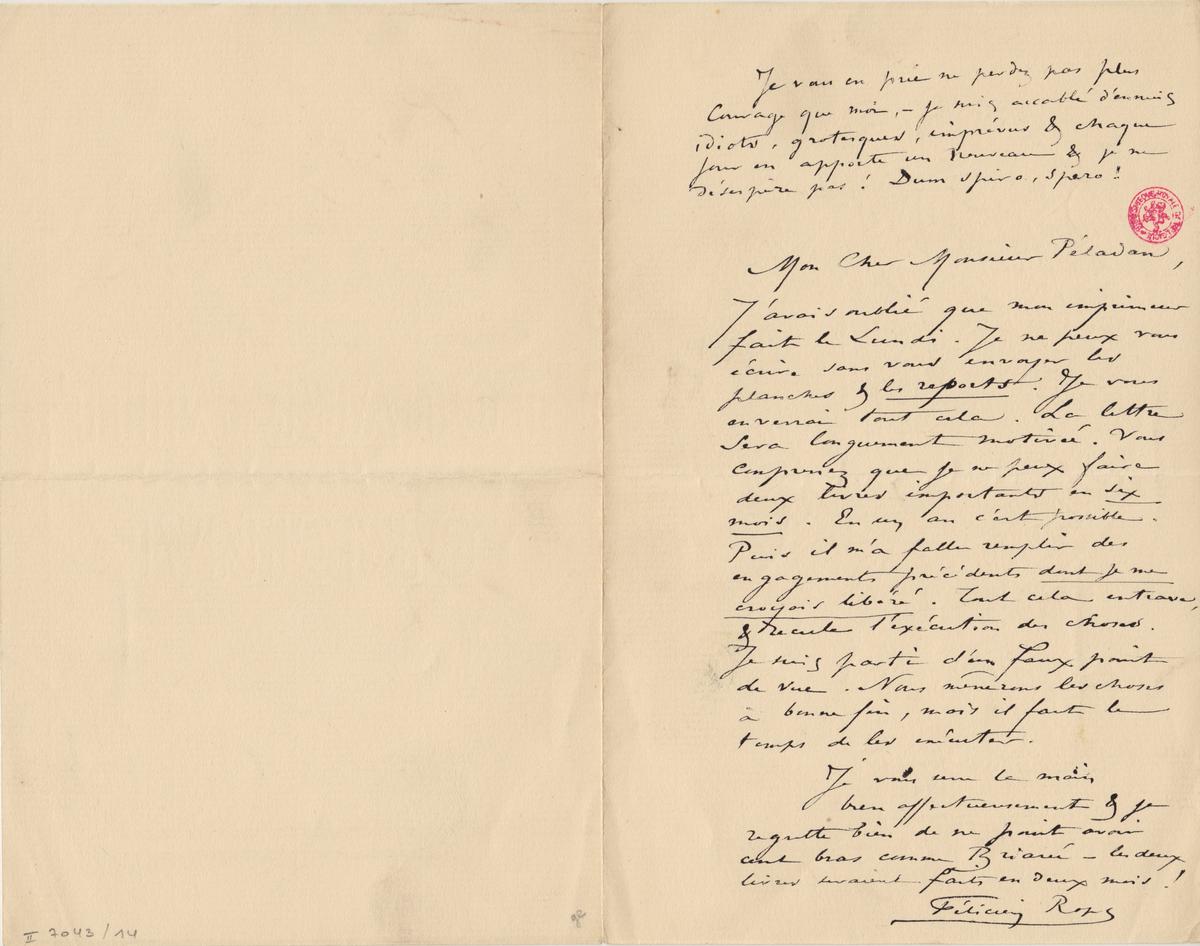 Je vous en prie ne perdez pas plus
Courage que moi, – je suis accablé d'ennuis
idiots, grotesques, imprévus & chaque
jour en apporte un nouveau & je ne
désespère pas ! Dum spiro, spero !
Mon Cher Monsieur Péladan,
J'avais oublié que mon imprimeur
fait le Lundi. Je ne peux vous
écrire sans vous envoyer les
planches & les reports. Je vous
enverrai tout cela. La lettre
sera longuement motivée. Vous
comprenez que je ne peux faire
deux livres importants en six
mois. En un an c'est possible.
Puis il m'a fallu remplir des
engagements précédents dont je me
croyais libéré. Tout cela entrave,
& recule l'exécution des choses.
Je suis parti d'un faux point
de vue. Nous mènerons les choses
à bonne fin, mais il faut le
temps de les exécuter.
Je vous serre la main
bien affectueusement & je
regrette bien de ne point avoir
cent bras comme Briarée – les deux
livres seraient faits en deux mois !
Félicien Rops
II 7043 / 14